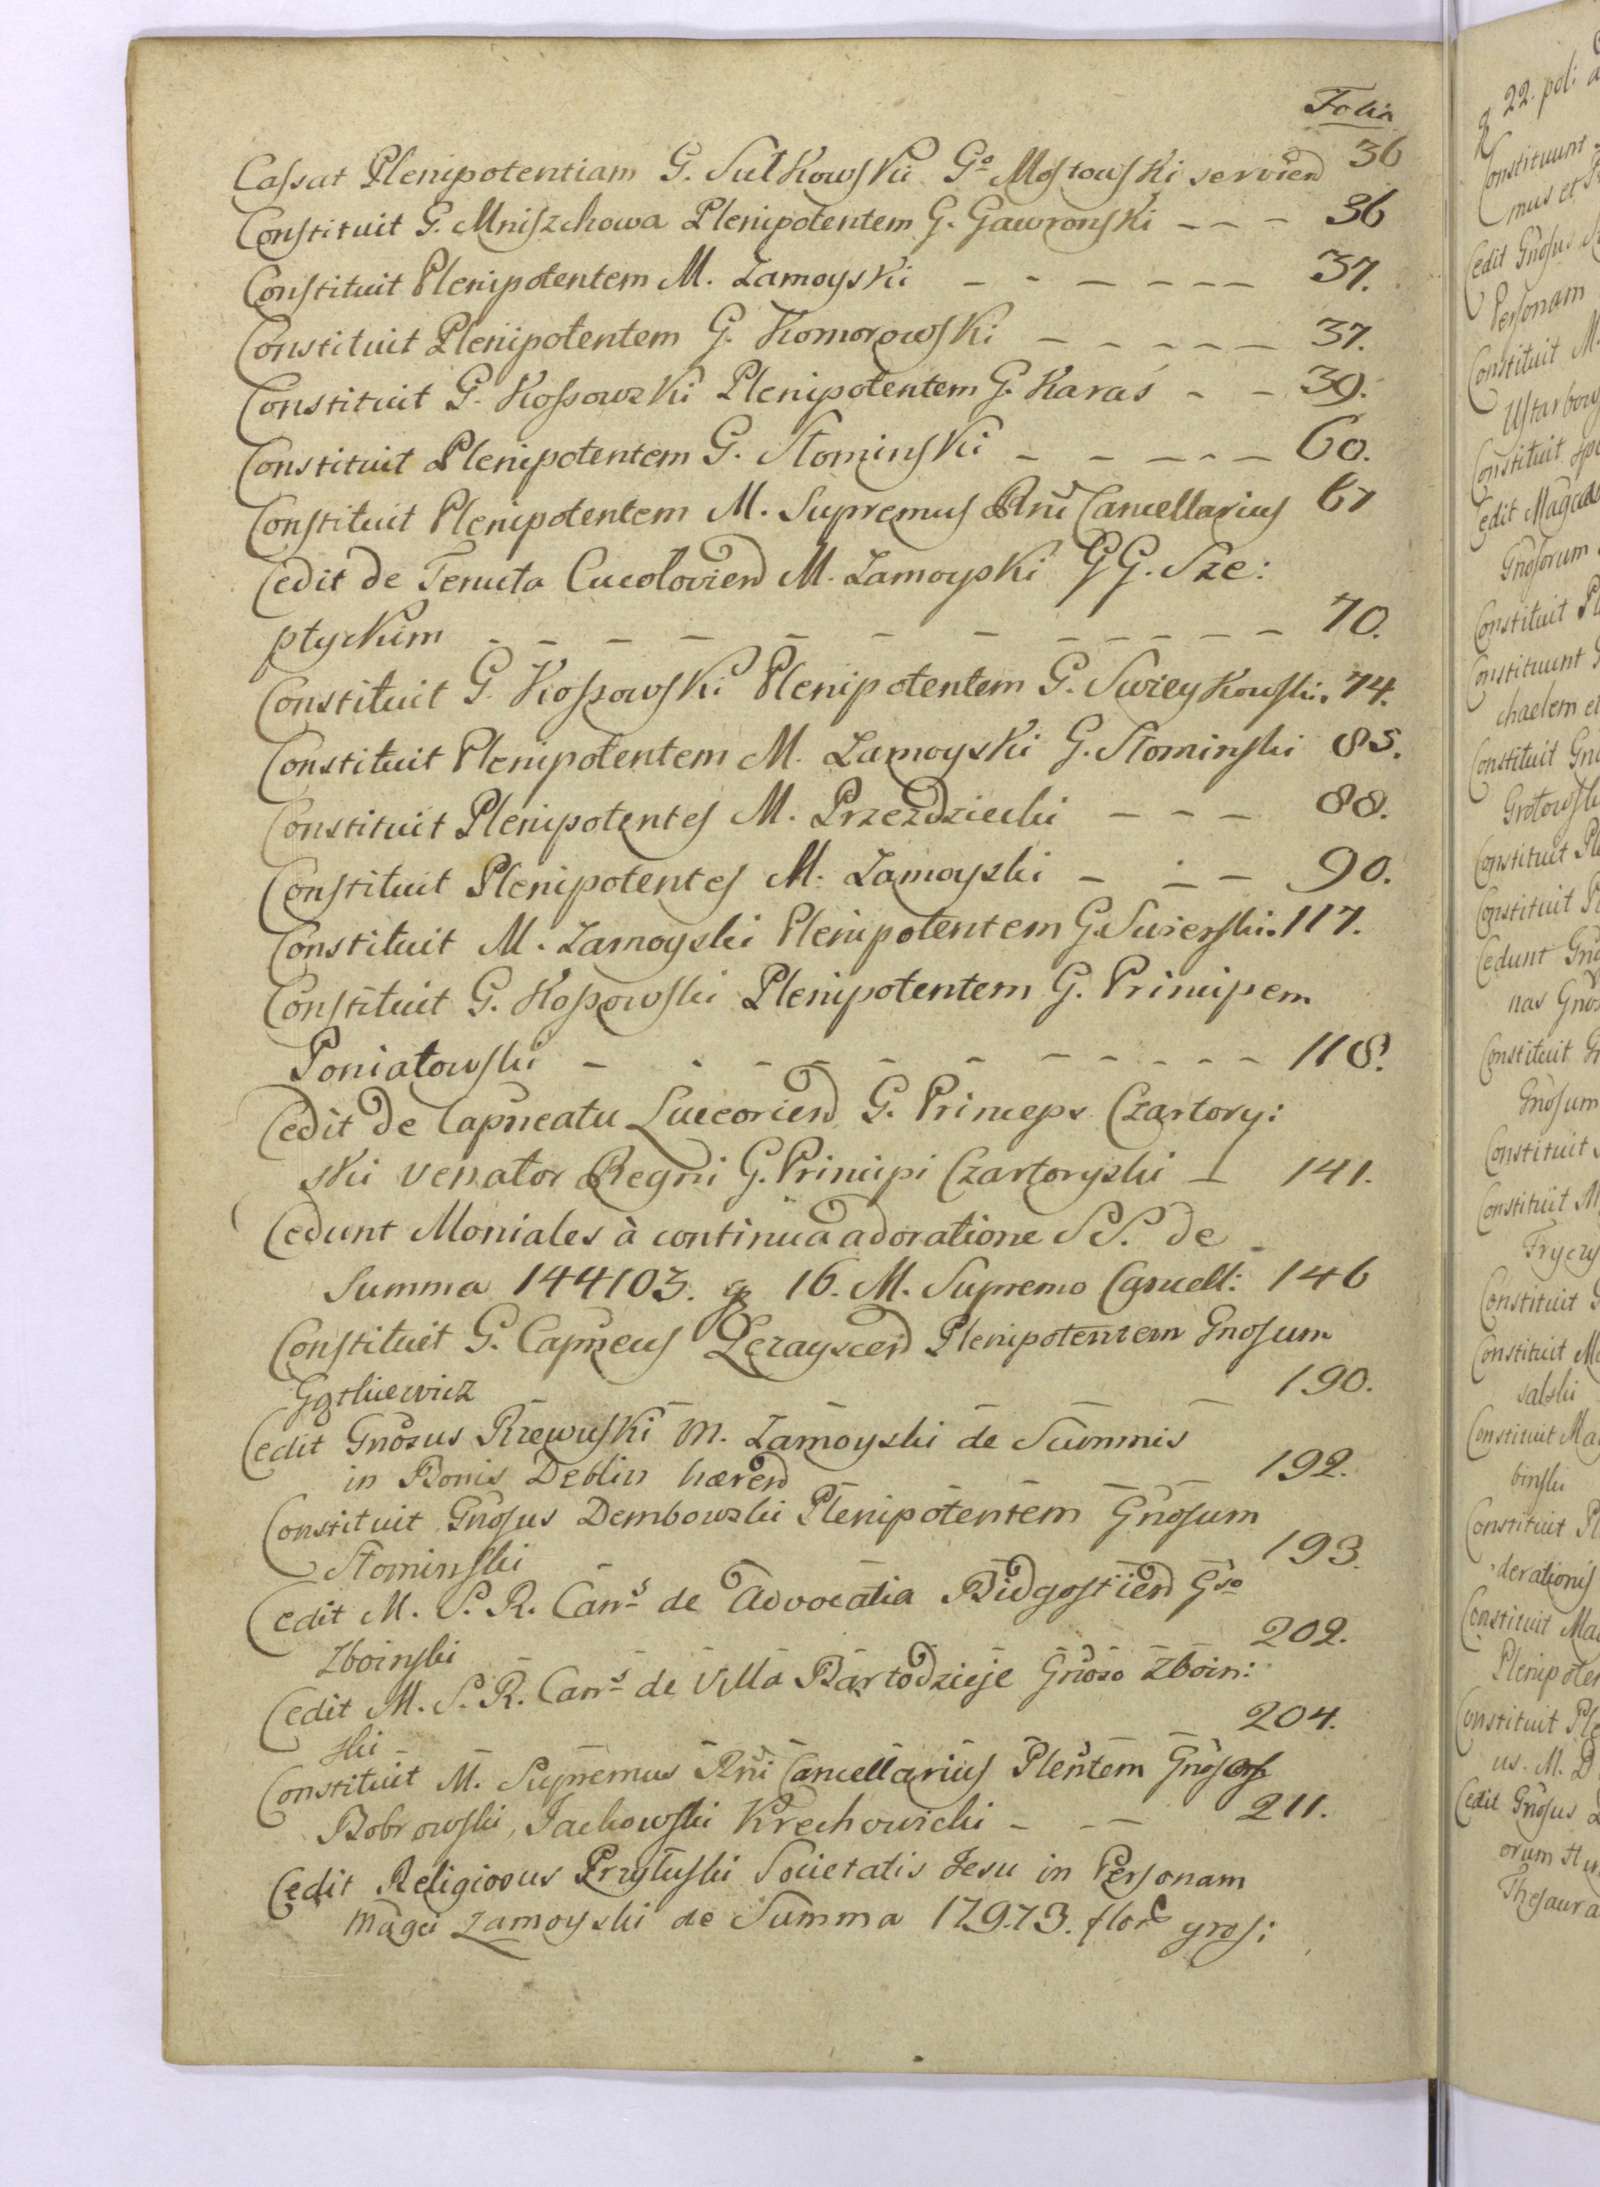 Folia
Cassat Plenipotentiam G. Sułkowski Gº Mostowski servien 36
Constituit G. Mniszchowa Plenipotentem G. Gawronski - - - 36
Constituit Plenipotentem M. Zamoyski - - - - - - 37.
Constituit Plenipotentem G. Komorowski - - - - - 37.
Constituit G. Kossowski Plenipotentem G. Karaś - - 39.
Constituit Plenipotentem G. Słominski - - - - - 60.
Constituit Plenipotentem M. Supremus Rni Cancellarius 67
Cedit de Tenuta Cucolovien M. Zamoyski GG. Sze:
ptyckim - - - - - - - - - - - - 70.
Constituit G. Kossowski Plenipotentem G. Swieykowski. 74.
Constituit Plenipotentem M. Zamoyski G. Słominski 85.
Constituit Plenipotentes M. Przezdziecki - - - 88.
Constituit Plenipotentes M. Zamoyski - - - 90.
Constituit M. Zamoyski Plenipotentem G. Swierski. 117.
Constituit G. Kossowski Plenipotentem G. Principem
Poniatowski - - - - - - - - - - - 118.
Cedit de Capneatu Luceorien G. Princeps Czartory:
ski Venator Regni G. Principi Czartoryski - 141.
Cedunt Moniales à continua adoratione SS. de
Summa 144103. g 16. M. Supremo Cancell: 146
Constituit G. Capneus Lezayscen Plenipotentem Gnosum
190.
Cedit Gnosus Rzewuski M. Zamoyski de Summis
in Bonis Deblin hæren 192.
Constituit Gnosus Dembowski Plenipotentem Gnosum
Słominski 193.
Cedit M. S. R. Canˢ de Advocatia Bidgostien Gso
Zboinski 202.
Cedit M. S. R. Canˢ de Villa Bartodzieje Gnoso Zboin:
ski 204.
Constituit M. Supremus Rni Cancellarius Plentem Gnosos
Bobrowski, Jackowski Krechowicki - - - 211.
Cedit Religiosus Przyłuski Societatis Jesu in Personam
Magci Zamoyski de Summa 17973. flor gros:
22. pol: a
Constituunt
mus et
Cedit Gnosus
Personam
Constituit M.
Constituit
Cedit Magcus
Gnosorum
Constituit Pl
Constituunt G
chaelem et
Constituit Gno
Grotowski
Constituit Ple
Constituit Pl
Cedunt Gno
nas Gnos
Constituit G
Gnosum
Constituit
Constituit M
Constituit G
Constituit Ma
salski
Constituit Mag
binski
Constituit Pl
derationis
Constituit Mag
Plenipoten
Constituit Ple
us. M. D
Cedit Gnosus
orum
Thesaura